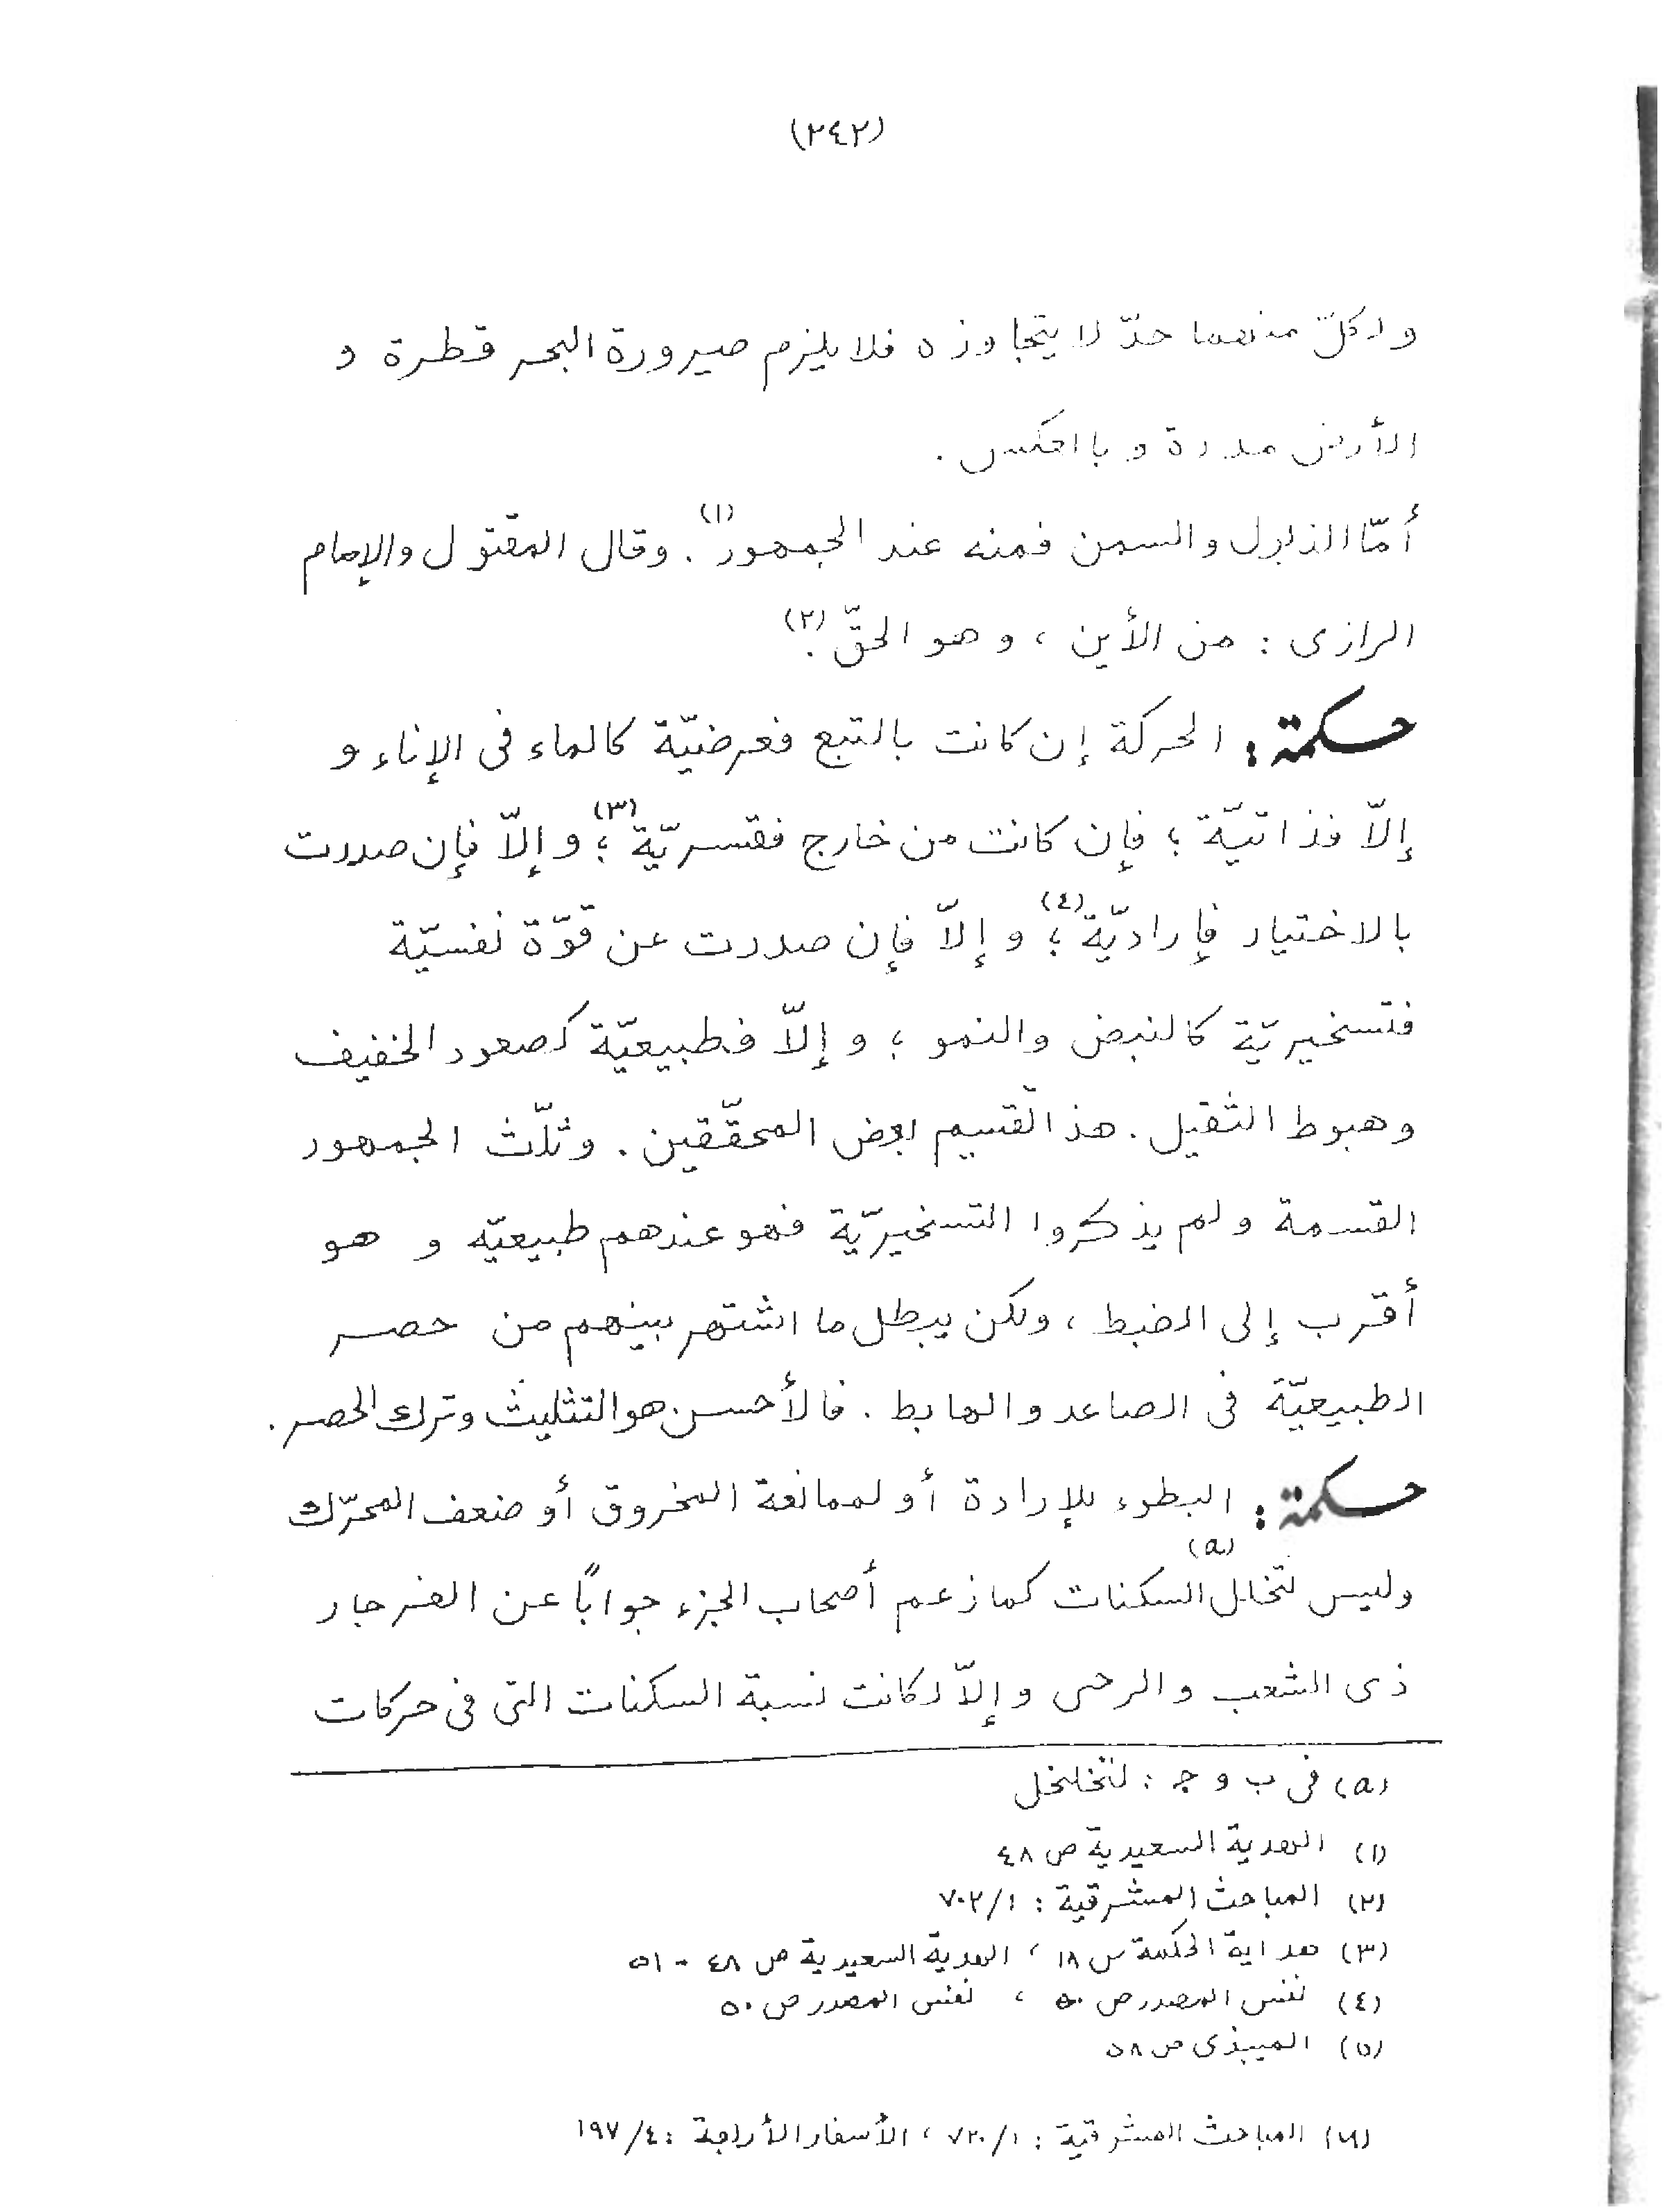 (٢٤٢)
ولكلّ منهما حدّ لا يتجاوزه فلا يلزم صيرورة البحر قطرة و
الأرض مدرة و بالعكس .
أمّا الذبول والسمن فمنه عند الجمهور(١) . وقال المقتول والإمام
الرازى : من الأين ، و هو الحقّ .(٢)
حكمة : الحركة إن كانت بالتبع فعرضيّة كالماء فى الإناء و
إلاّ فذاتيّة ؛ فإن كانت من خارج فقسريّة(٣) ؛ و إلاّ فإن صدرت
بالاختيار فإراديّة(٤) ؛ و إلاّ فإن صدرت عن قوّة نفسيّة
فتسخيريّة كالنبض والنمو ؛ و إلاّ فطبيعيّة كصعود الخفيف
و هبوط الثقيل . هذا تقسيم بعض المحقّقين . و ثلّث الجمهور
القسمة و لم يذكروا التسخيريّة فهو عندهم طبيعيّه و هو
أقرب إلى الضبط ، ولكن يبطل ما اشتهر بينهم من حصر
الطبيعيّة فى الصاعد و الهابط . فالأحسن هو التثليث و ترك الحصر .
حكمة : البطوء للإرادة أو لممانعة المخروق أو ضعف المحرّك
وليس لتخلل(a) السكنات كما زعم أصحاب الجزء جوابًا عن الفرجار
ذى الشعب و الرحى و إلاّ لكانت نسبة السكنات التى فى حركات
(a) فى ب و ج : لتخلخل
(١) الهدية السعيدية ص ٤٨
(٢) المباحث المشرقية : ٧٠٢/١
(٣) هداية الحكمة س ١٨ ، الهدية السعيدية ص ٤٨ - ٥١
(٤) نفس المصدر ص ٥٠ ، نفس المصدر ص ٥٠
(٥) الميبذى ص ٥٨
(٦) المباحث المشرقية : ٧٢٠/١ ، الأسفار الأربعة : ١٩٧/٤